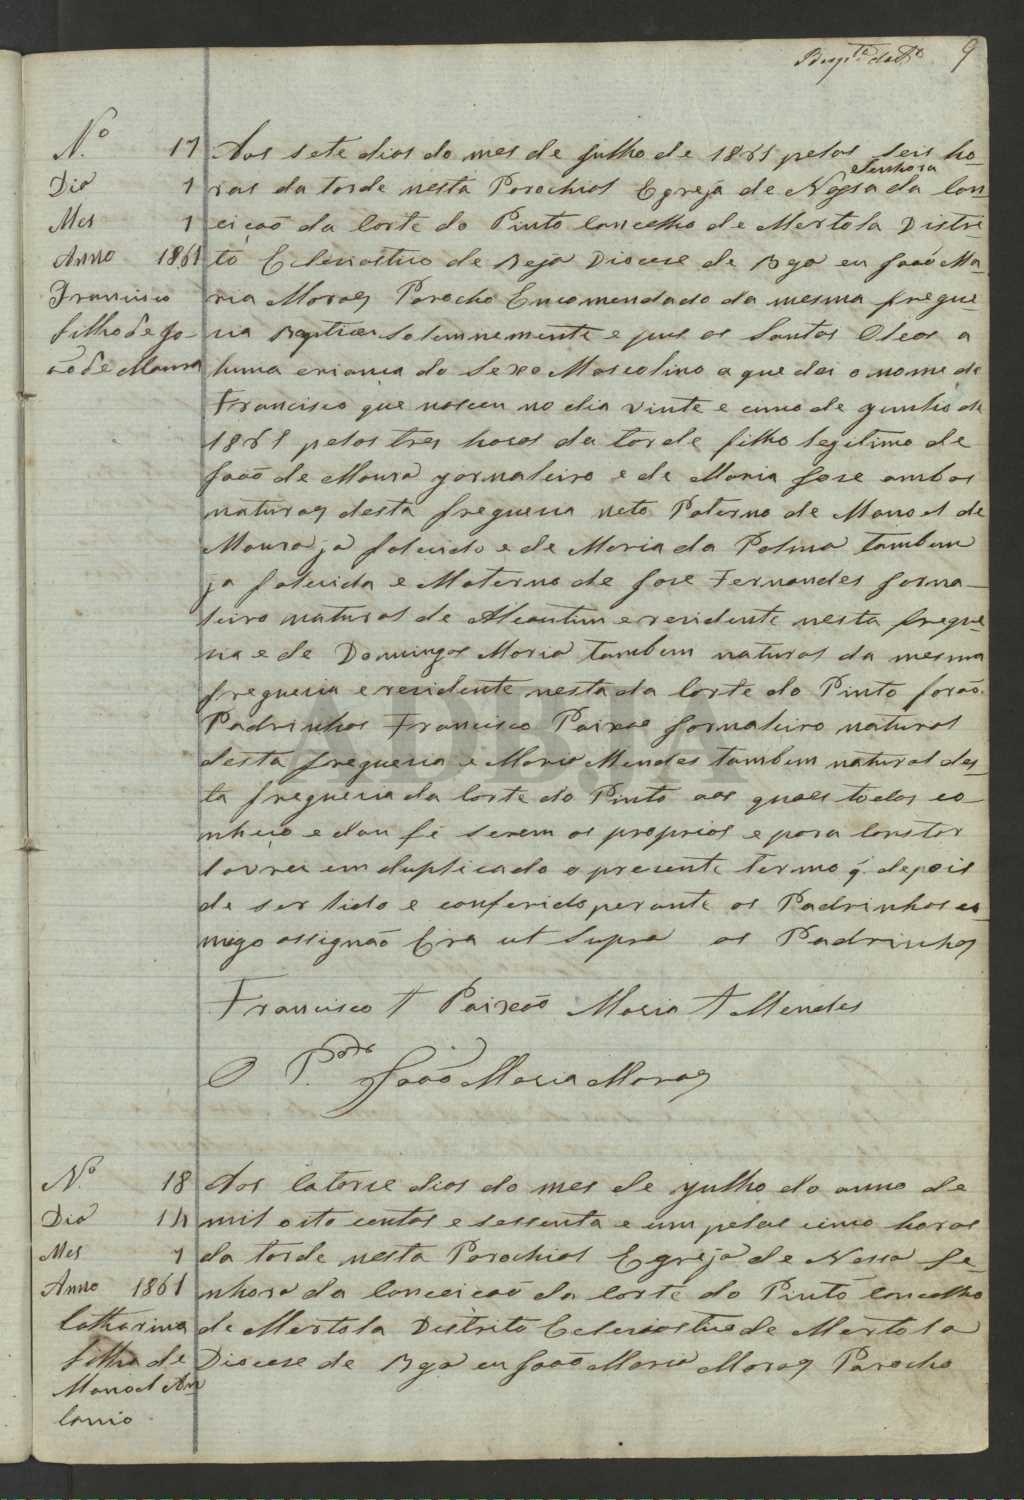 9
N.º 17
Dia 7
Mes 7
Anno 1861
Francisco
filho de Jo-
ão de Moura
Aos sete dias do mes de julho de 1861 pelas seis ho-
ras da tarde nesta Parochial Egreja de Nossa Senhora da Con-
ceição da Corte do Pinto Concelho de Mertola Distri-
to Eclesiastico de Beja Diocese de Beja eu João Ma-
ria Moraes Parocho Encomendado da mesma fregue-
sia Baptisei solemnemente e pus os Santos Oleos a
huma criança do Sexo Mascolino a que dei o nome de
Francisco que nasceu no dia vinte e cinco de junho de
1861 pelas tres horas da tarde filho legitimo de
João de Moura jornaleiro e de Maria Jose ambos
naturaes desta freguesia neto Paterno de Manoel de
Moura ja falecido e de Maria da Palma tambem
ja falecida e Materno de Jose Fernandes Jorna-
leiro natural de Alcoutim e residente nesta fregue-
sia e de Domingas Maria tambem natural da mesma
freguesia e residente nesta da Corte do Pinto forão
Padrinhos Francisco Paixão Jornaleiro natural
desta freguesia e Maria Mendes tambem natural des-
ta freguesia da Corte do Pinto aos quaes todos co-
nheço e dou fé serem os proprios e para constar
lavrei em duplicado o presente termo q. depois
de ser lido e conferido perante os Padrinhos co-
migo assignão Era ut supra os Padrinhos
Francisco † Paixão Maria † Mendes
O P. João Maria Moraes
ADBJA
N.º 18
Dia 14
Mes 7
Anno 1861
Catharina
filha de
Manoel An
tonio
Aos Catorse dias do mes de julho do anno de
mil oito centos e sessenta e um pelas cinco horas
da tarde nesta Parochial Egreja de Nossa Se-
nhora da Conceição da Corte do Pinto Concelho
de Mertola Distrito Eclesiastico de Mertola
Diocese de Beja eu João Maria Moraes Parocho